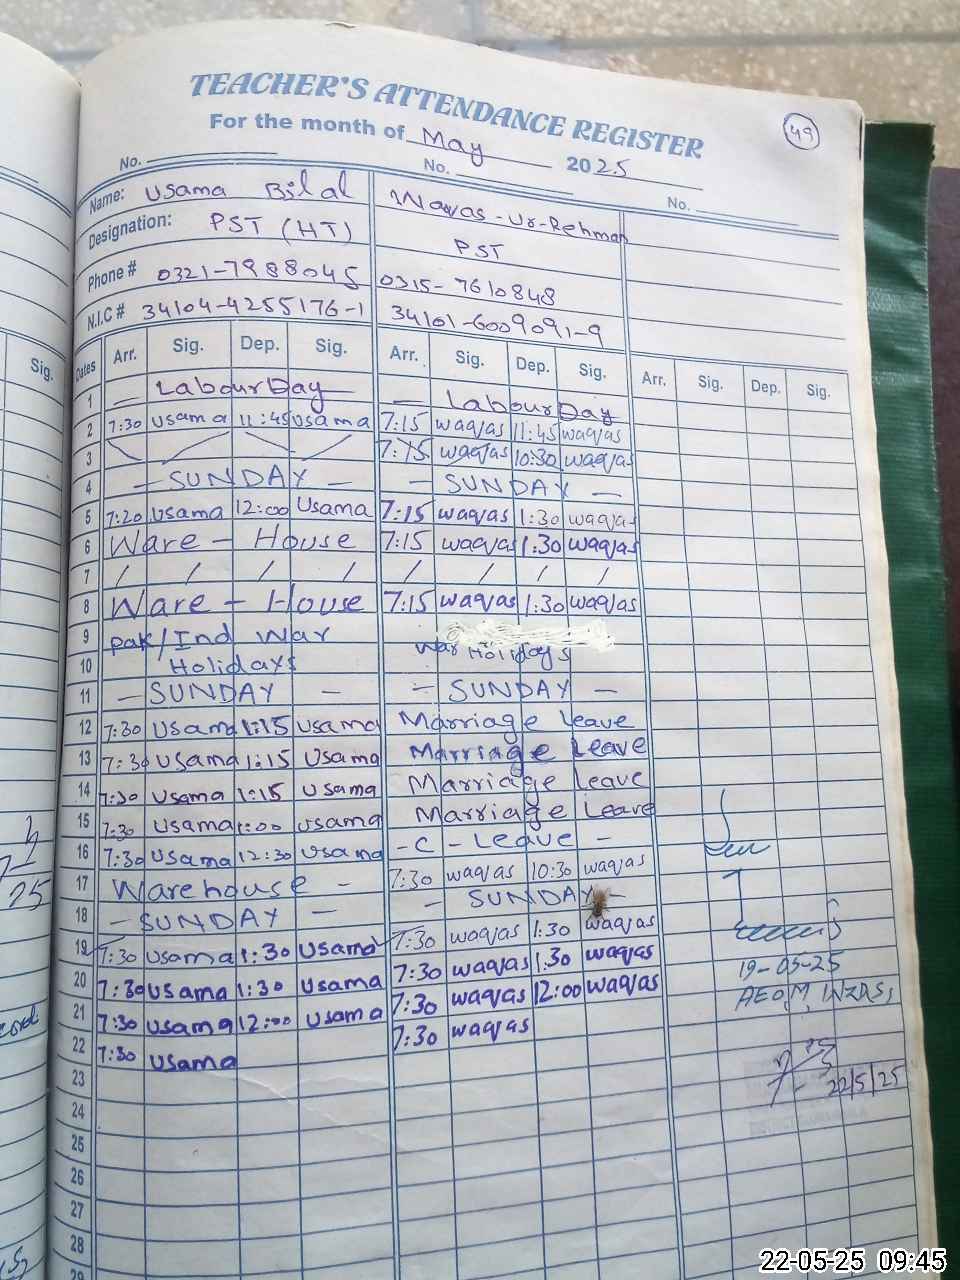 TEACHER'S ATTENDANCE REGISTER
49
For the month of May 2025
No. No. No.
Name: Usama Bilal Waqas-Ur-Rehman
Designation: PST (HT) PST
Phone # 0321-7988045 0315-7610848
N.I.C # 34104-4255176-1 34101-6009091-9
Sig. Dates Arr. Sig. Dep. Sig. Arr. Sig. Dep. Sig. Arr. Sig. Dep. Sig.
1 — Labour Day — — Labour Day
2 7:30 Usama 11:45 Usama 7:15 waqas 11:45 waqas
3 7:15 waqas 10:30 waqas
4 — SUNDAY — — SUNDAY —
5 7:20 Usama 12:00 Usama 7:15 waqas 1:30 waqas
6 Ware - House 7:15 waqas 1:30 waqas
7 / / / / / / / /
8 Ware - House 7:15 waqas 1:30 waqas
9 Pak/Ind War
10 Holidays War Holidays
11 — SUNDAY — — SUNDAY —
12 7:30 Usama 1:15 Usama Marriage Leave
13 7:30 Usama 1:15 Usama Marriage Leave
14 7:30 Usama 1:15 Usama Marriage Leave
15 7:30 Usama 1:00 Usama Marriage Leave
16 7:30 Usama 12:30 Usama - C - Leave -
17 Warehouse - 7:30 waqas 10:30 waqas
18 — SUNDAY — — SUNDAY —
19 7:30 Usama 1:30 Usama 7:30 waqas 1:30 waqas
20 7:30 Usama 1:30 Usama 7:30 waqas 1:30 waqas
19-05-25
21 7:30 Usama 12:00 Usama 7:30 waqas 12:00 waqas
22 7:30 Usama 7:30 waqas
23
22/5/25
24
25
26
27
28
29
25
22-05-25 09:45